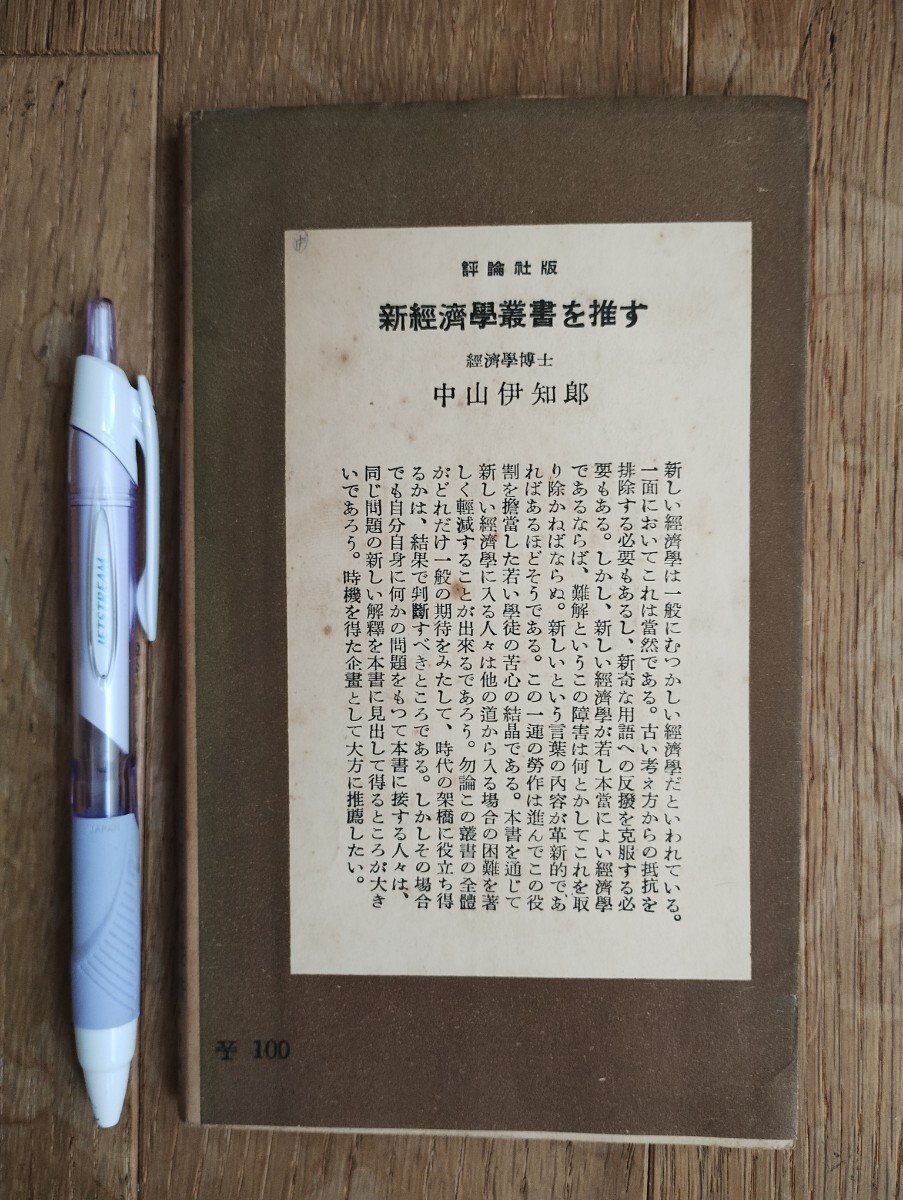 評論社版
新經濟學叢書を推す
經濟學博士
中山伊知郎
新しい經濟學は一般にむつかしい經濟學だといわれている。
一面においてこれは當然である。古い考え方からの抵抗を
排除する必要もあるし、新奇な用語への反撥を克服する必
要もある。しかし、新しい經濟學が若し本當によい經濟學
であるならば、難解というこの障害は何とかしてこれを取
り除かねばならぬ。新しいという言葉の內容が革新的であ
ればあるほどそうである。この一連の勞作は進んでこの役
割を擔當した若い學徒の苦心の結晶である。本書を通じて
新しい經濟學に入る人々は他の道から入る場合の困難を著
しく輕減することが出來るであろう。勿論この叢書の全體
がどれだけ一般の期待をみたして、時代の架橋に役立ち得
るかは、結果で判斷すべきところである。しかしその場合
でも自分自身に何かの問題をもつて本書に接する人々は、
同じ問題の新しい解釋を本書に見出して得るところが大き
いであろう。時機を得た企畫として大方に推薦したい。
100
JETSTREAM
JAPAN